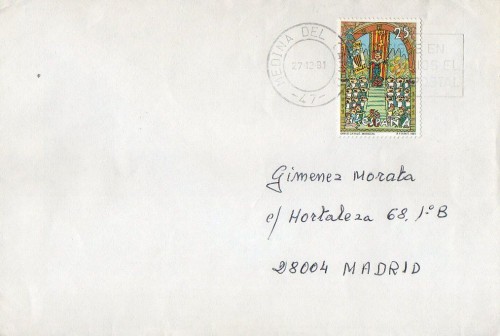 MEDINA DEL
27-12-91
-47-
EN
EL
25
ESPAÑA
Gimenez Morata
c/ Hortaleza 68, 1º B
28004 MADRID